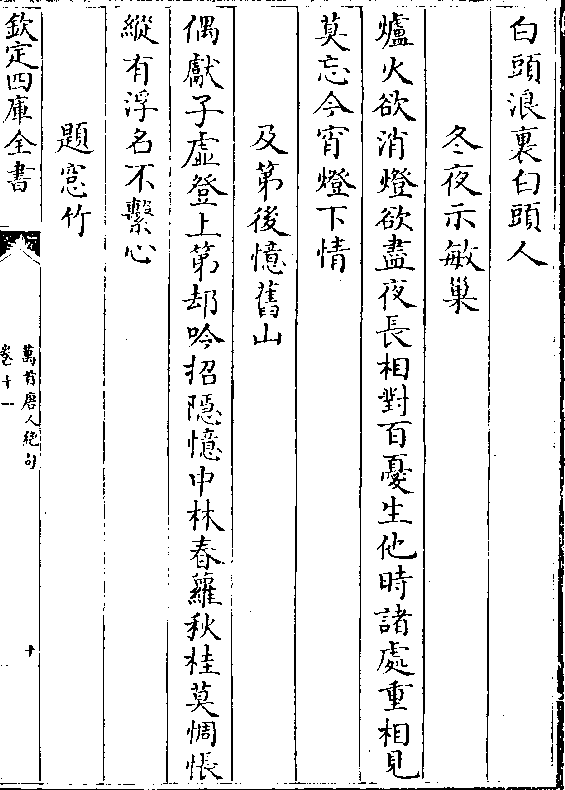 白頭浪裏白頭人
冬夜示敏巢
爐火欲消燈欲盡夜長相對百憂生他時諸處重相見
莫忘今宵燈下情
及第後憶舊山
偶獻子虛登上第却吟招隱憶中林春蘿秋桂莫惆悵
縱有浮名不繫心
題窓竹
欽定四庫全書
萬首唐人絶句
卷十一
十